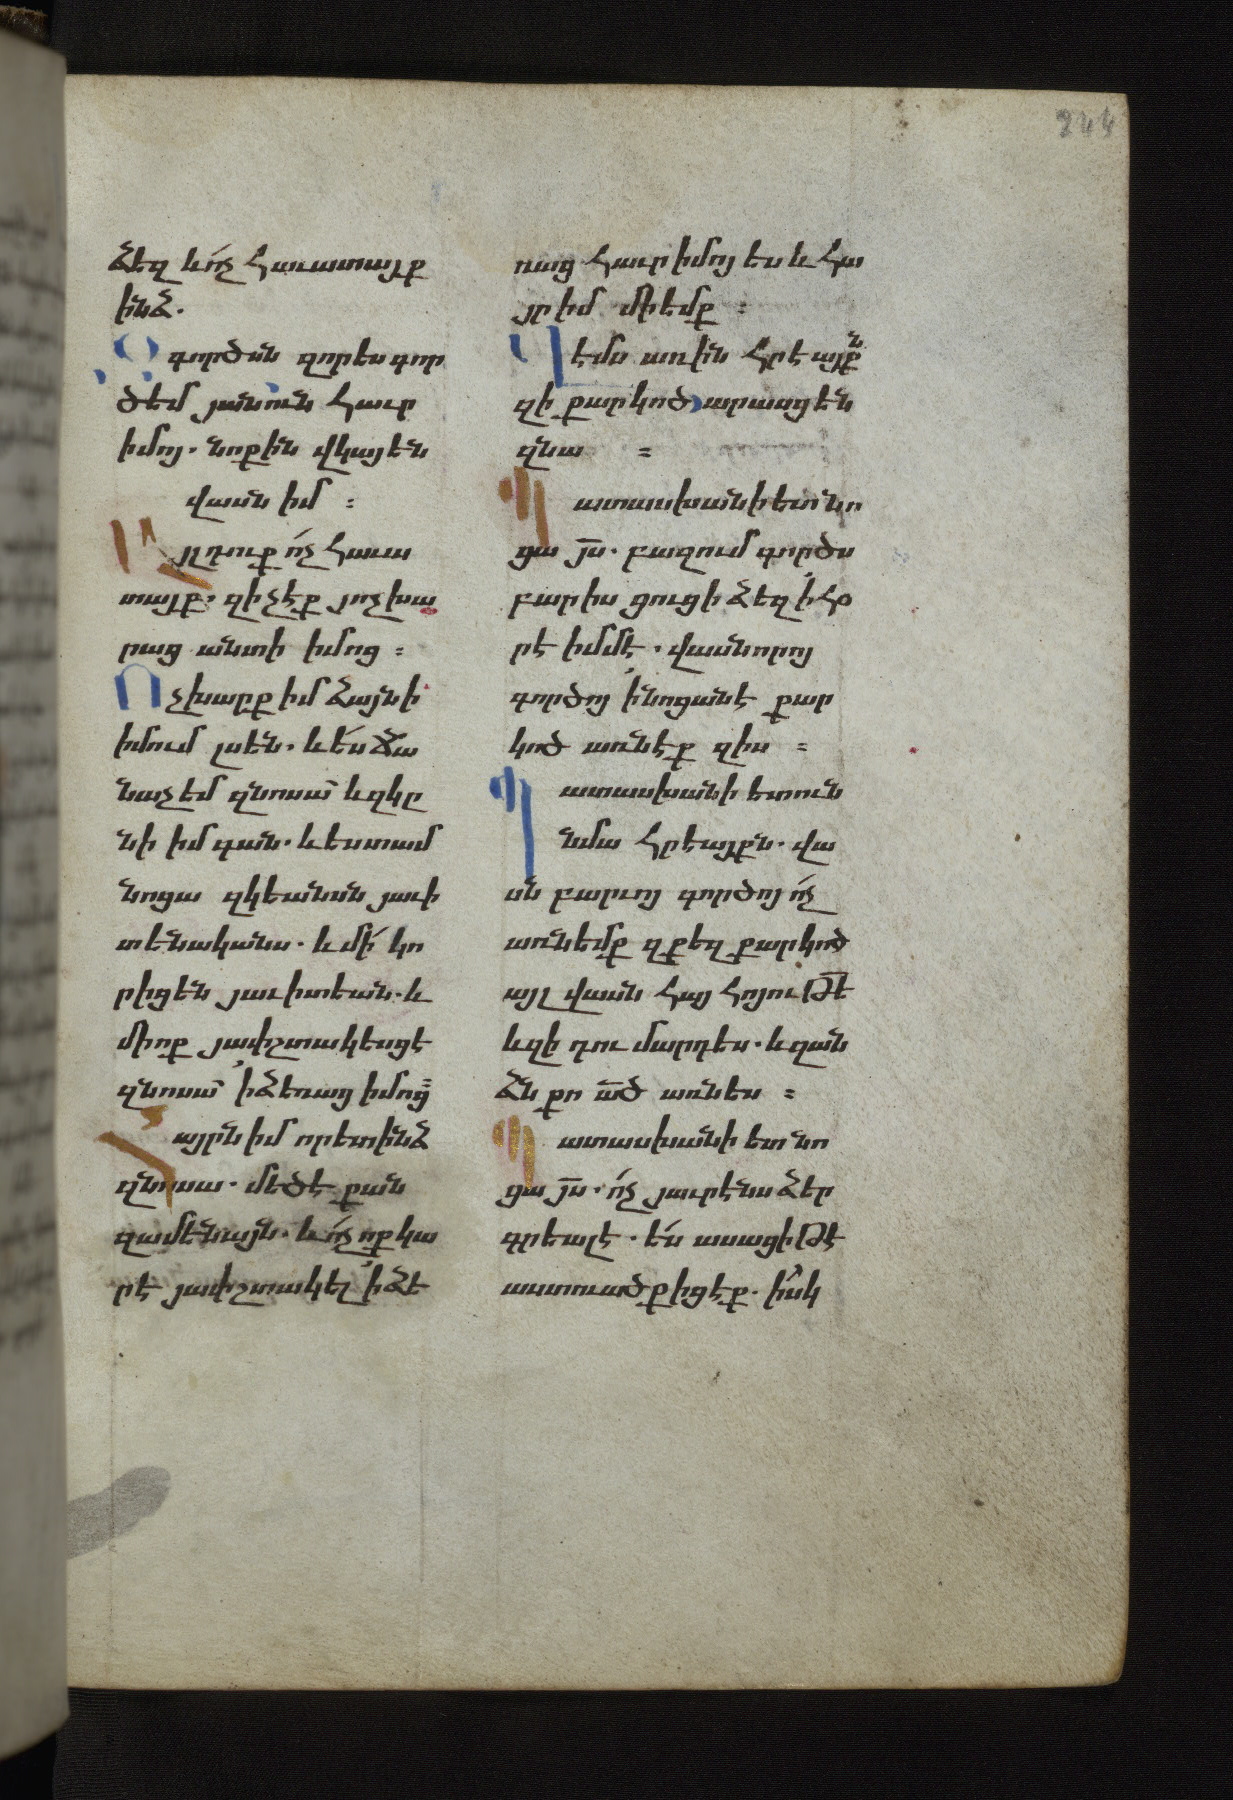 244
ձեզ և ո՛չ հաւատայք
ինձ.
Զգործսն զոր ես գոր
ծեմ յանուն հաւր
իմոյ. նոքին վկայեն
վասն իմ :
Այլ դուք ո՛չ հաւա
տայք. զի չէք յոչխա
րաց անտի իմոց :
Ոչխարք իմ ձայնի
իմում լսեն. և ե՛ս ճա
նաչեմ զնոսա՝ և զկը
նի իմ գան. և ես տամ
նոցա զկեանսն յաւի
տենականս. և մի՛ կո
րիցեն յաւիտեան. և
մի ոք յափշտակեսցէ
զնոսա՝ ի ձեռաց իմոց :
Հայրն իմ որ ետ ինձ
զնոսա. մեծ է քան
զամենայն. և ո՛չ ոք կա
րէ յափշտակել ի ձե
ռաց հաւր իմոյ ես և հա
յր իմ մի եմք :
Վէմս առին հրէայքն
զի քարկոծ արասցեն
զնա :
Պատասխանի ետ նո
ցա յս. բազում գործս
բարիս ցուցի ձեզ ի հօ
րէ իմմէ. վասն որոյ
գործոյ ի նոցանէ քար
կոծ առնէք զիս :
Պատասխանի ետուն
նմա հրէայքն. վա
սն բարւոյ գործոյ ո՛չ
առնեմք զքեզ քարկոծ
այլ վասն հայհոյութե
և զի դու մարդ ես. և զան
ձն քո ած առնես :
Պատասխանի ետ նո
ցա յս. ո՛չ յաւրէնս ձեր
գրեալ է. ե՛ս ասացի թէ
աստուածք իցէք. ի՛սկ